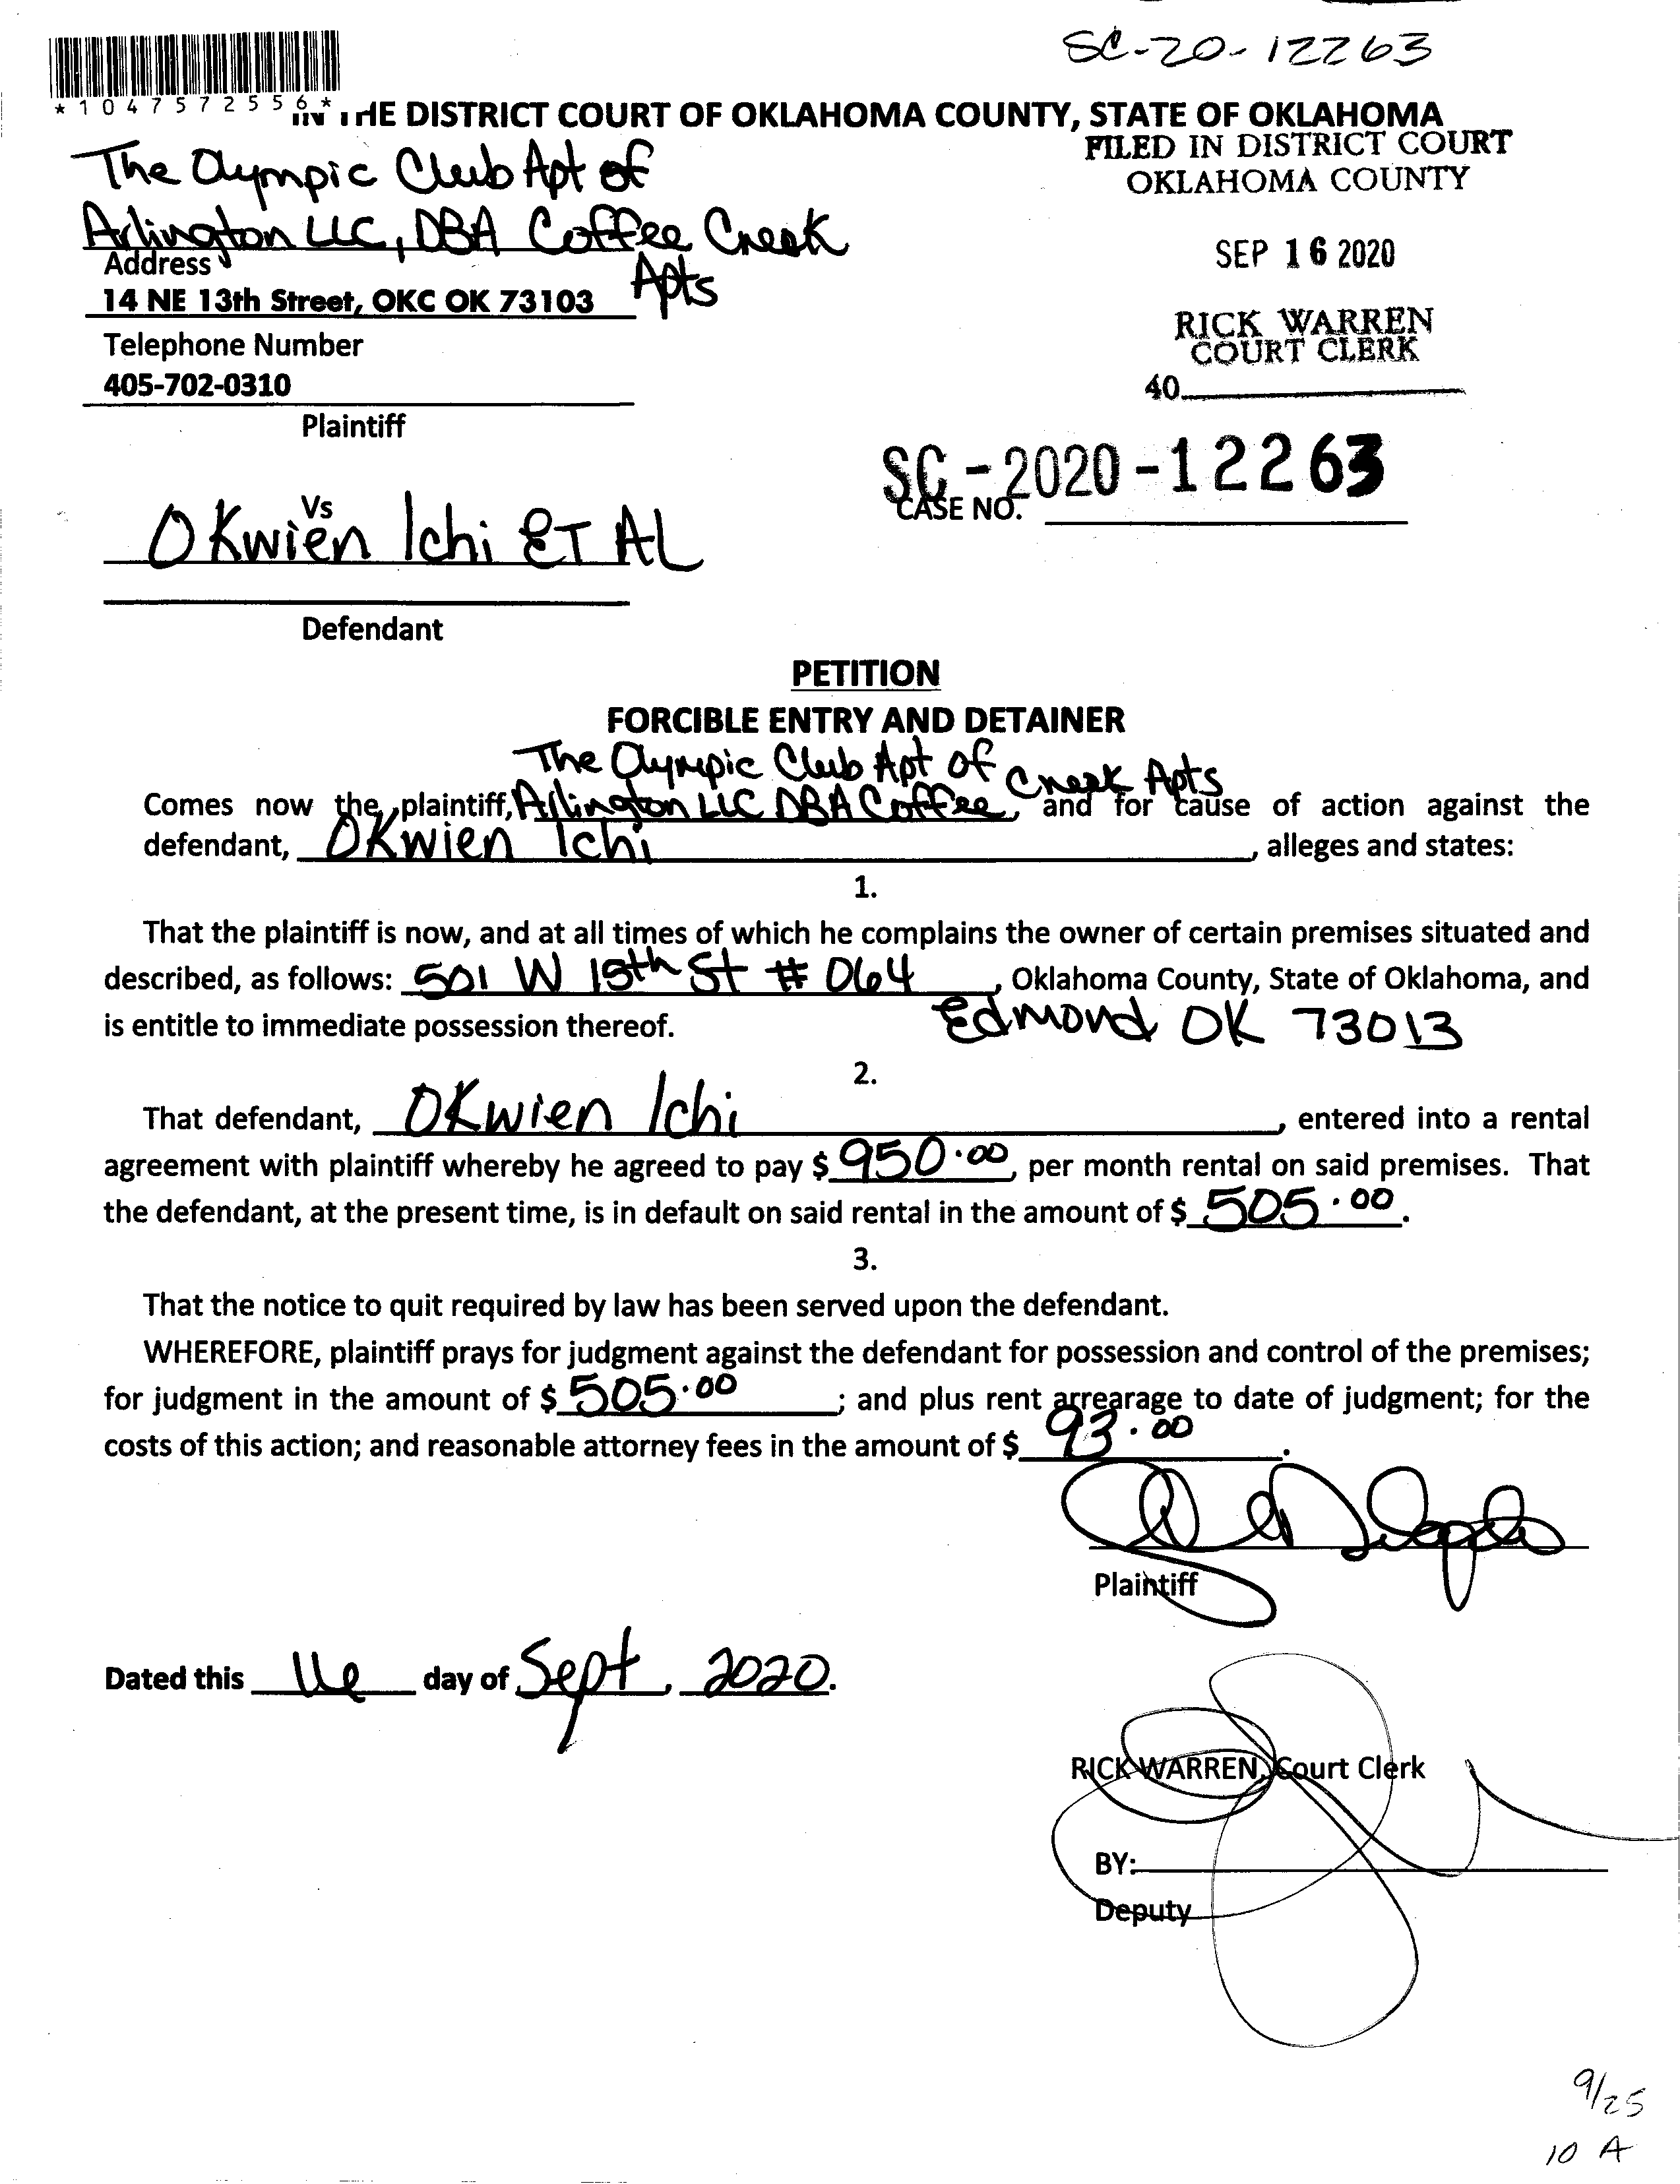 SC-20-12263
*1047572556*
IN THE DISTRICT COURT OF OKLAHOMA COUNTY, STATE OF OKLAHOMA
FILED IN DISTRICT COURT
OKLAHOMA COUNTY
The Olympic Club Apt of
Arlington LLC, DBA Coffee Creek
Apts
SEP 16 2020
Address
14 NE 13th Street, OKC OK 73103
RICK WARREN
COURT CLERK
Telephone Number
405-702-0310
40
Plaintiff
SC-2020-12263
CASE NO.
Vs
OKwien Ichi ET AL
Defendant
PETITION
FORCIBLE ENTRY AND DETAINER
The Olympic Club Apt of
Comes now the plaintiff, Arlington LLC DBA Coffee Creek Apts, and for cause of action against the
defendant, OKwien Ichi, alleges and states:
1.
That the plaintiff is now, and at all times of which he complains the owner of certain premises situated and
described, as follows: 501 W 15th St # 064, Oklahoma County, State of Oklahoma, and
is entitle to immediate possession thereof. Edmond OK 73013
2.
That defendant, OKwien Ichi, entered into a rental
agreement with plaintiff whereby he agreed to pay $ 950.00, per month rental on said premises. That
the defendant, at the present time, is in default on said rental in the amount of $ 505.00.
3.
That the notice to quit required by law has been served upon the defendant.
WHEREFORE, plaintiff prays for judgment against the defendant for possession and control of the premises;
for judgment in the amount of $ 505.00; and plus rent arrearage to date of judgment; for the
costs of this action; and reasonable attorney fees in the amount of $ 93.00.
Plaintiff
Dated this 16 day of Sept, 2020.
RICK WARREN, Court Clerk
BY:
Deputy
9/25
10 A